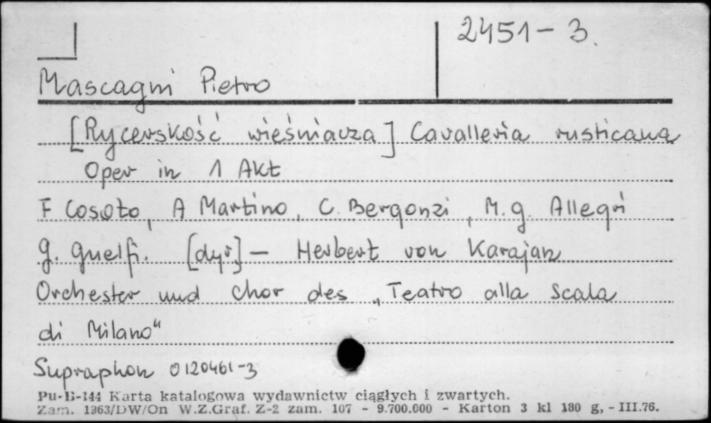 2451-3.
Mascagni Pietro
[Rycerskość wieśniacza] Cavalleria rusticana
Oper in 1 Akt
F Cosoto, A Martino, C. Bergonzi, M.g. Allegri
G. Guelfi. [dyr] - Herbert von Karajan
Orchester und Chor des „Teatro alla Scala
di Milano"
Supraphon 0120461-3
Pu-B-144 Karta katalogowa wydawnictw ciągłych i zwartych.
Zam. 1363/DW/On W.Z.Graf. Z-2 zam. 107 - 9.700.000 - Karton 3 kl 180 g, - III.76.